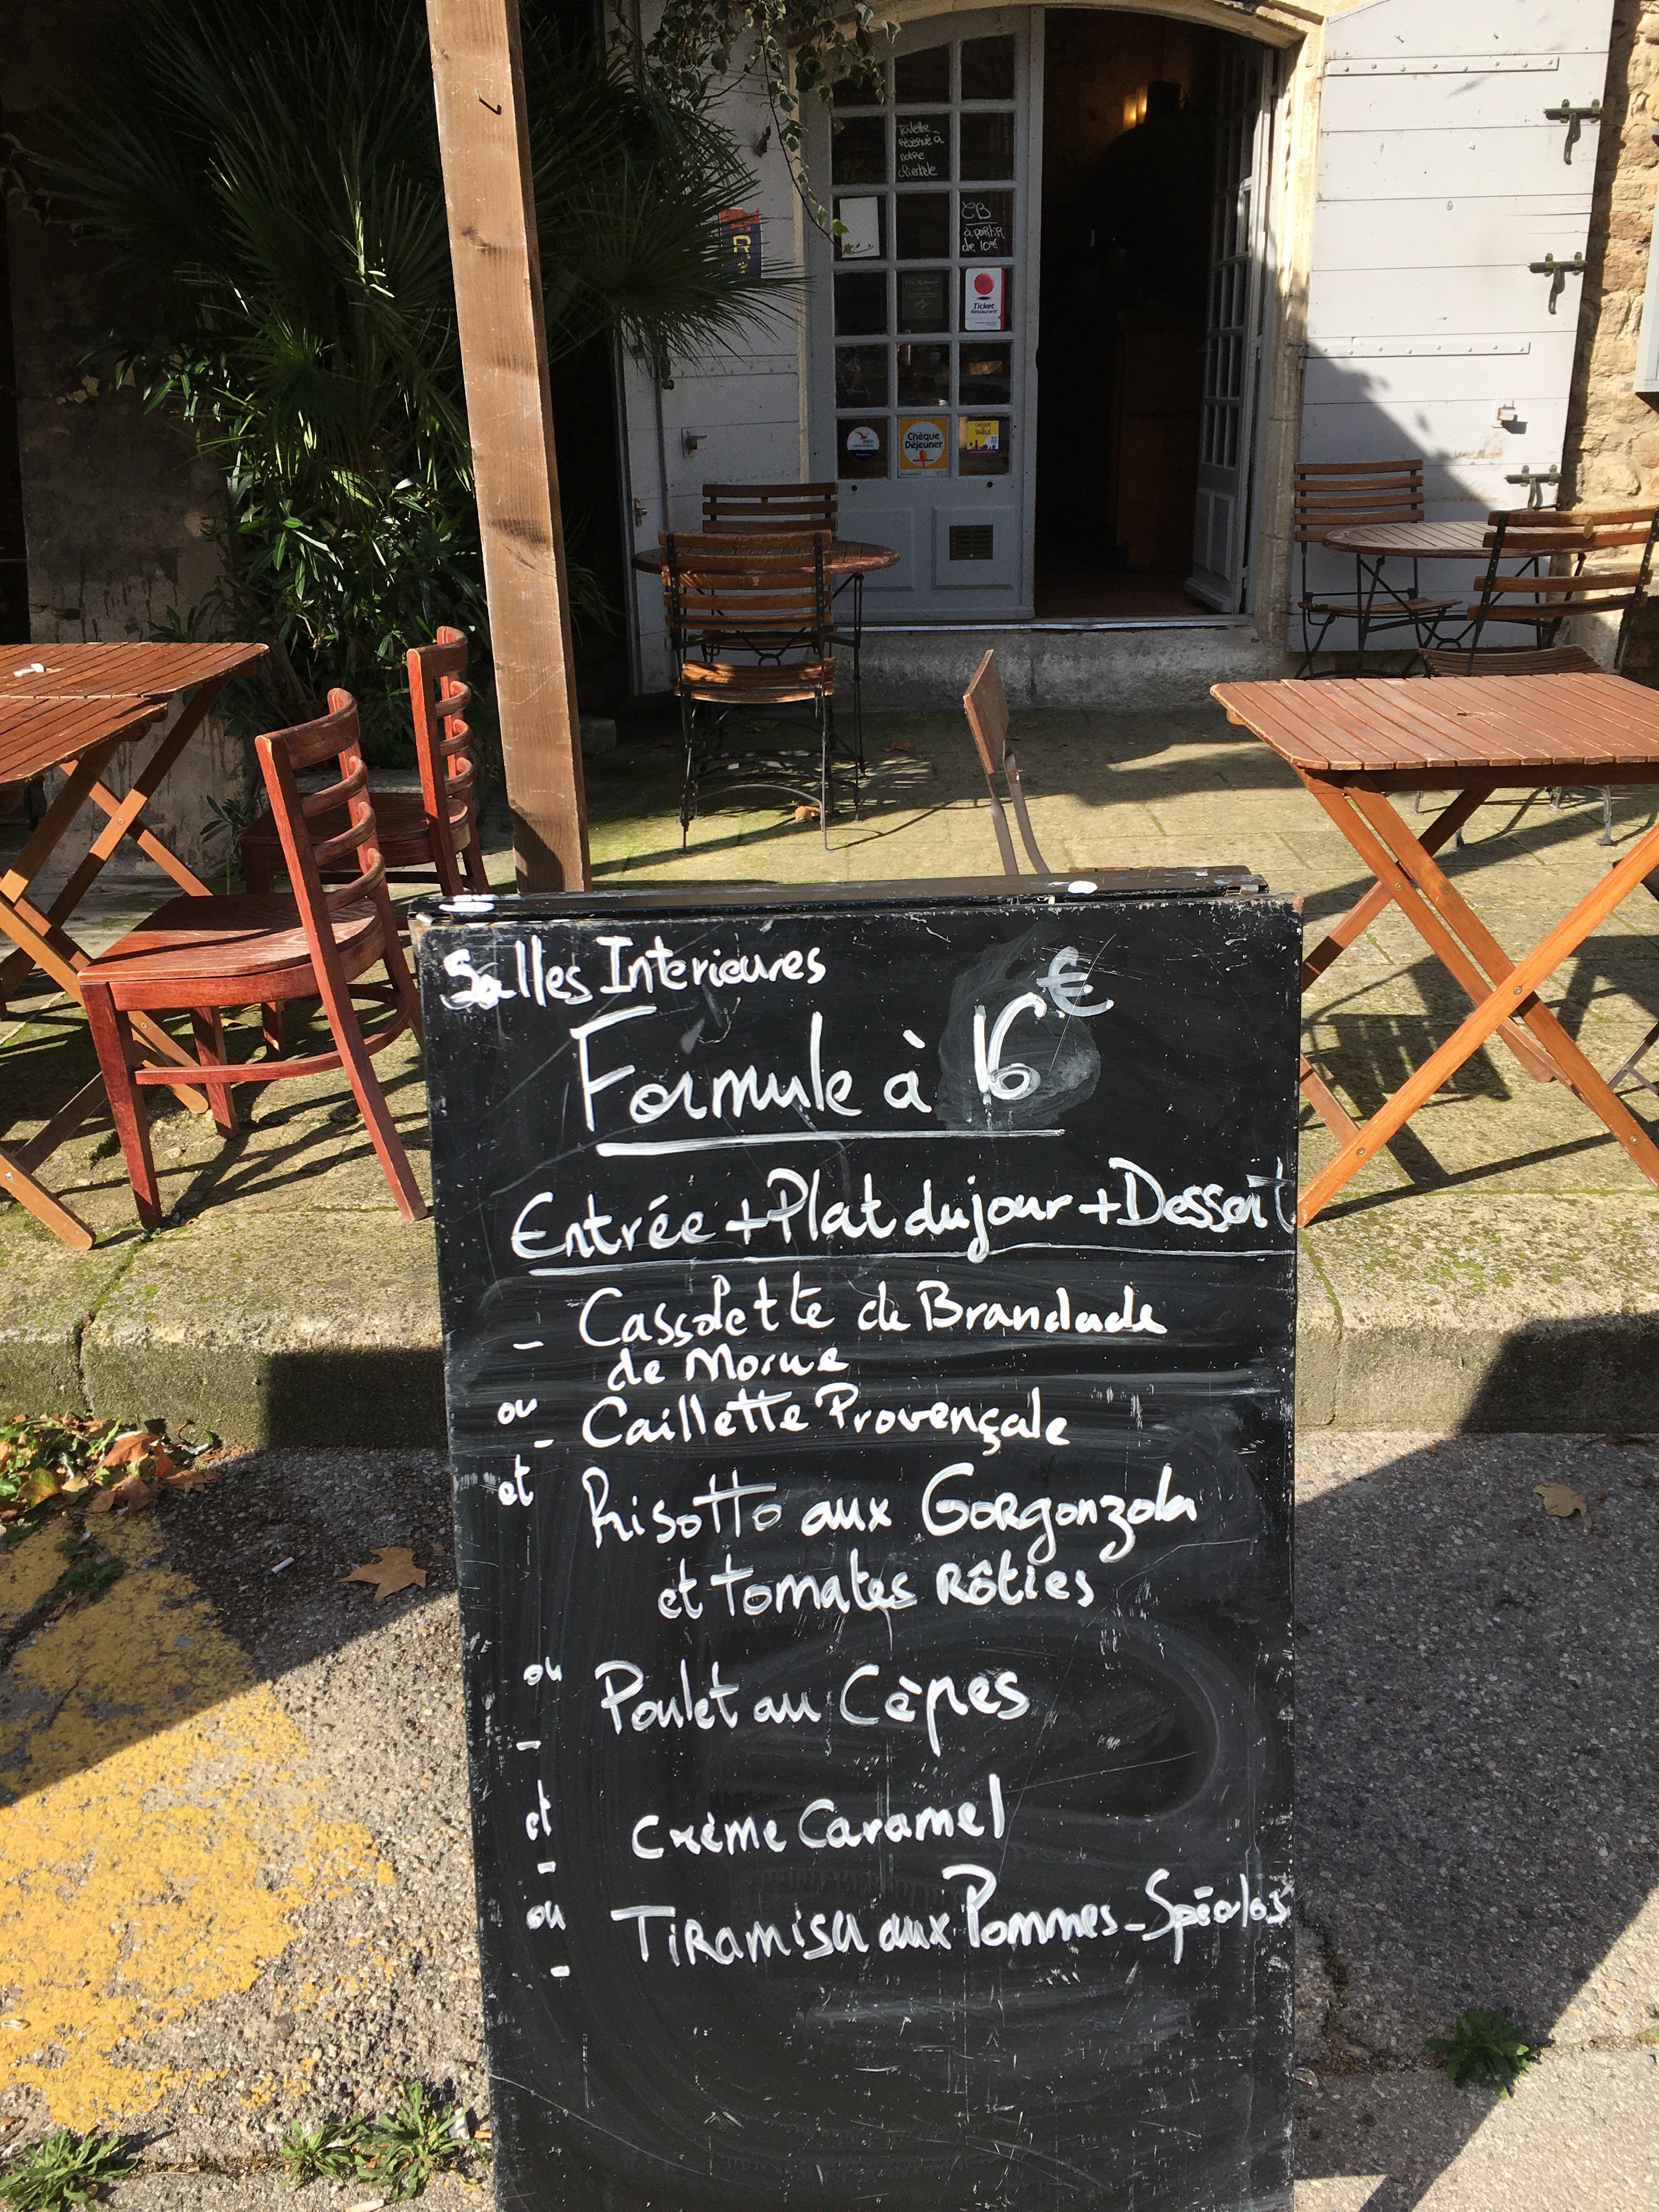 Toilette
réservé à
notre
clientèle
CB
à partir
de 10€
R
Ticket
Restaurant
Chèque
Déjeuner
Salles Interieures
Formule à 16€
Entrée + Plat du jour + Dessert
- Cassolette de Brandade
de Morue
ou - Caillette Provençale
et Risotto aux Gorgonzola
et tomates Rôties
ou Poulet au Cèpes
-
et Crème Caramel
-
ou Tiramisu aux Pommes - Spéculos
-